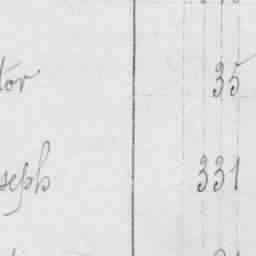 tor 35
seph 331